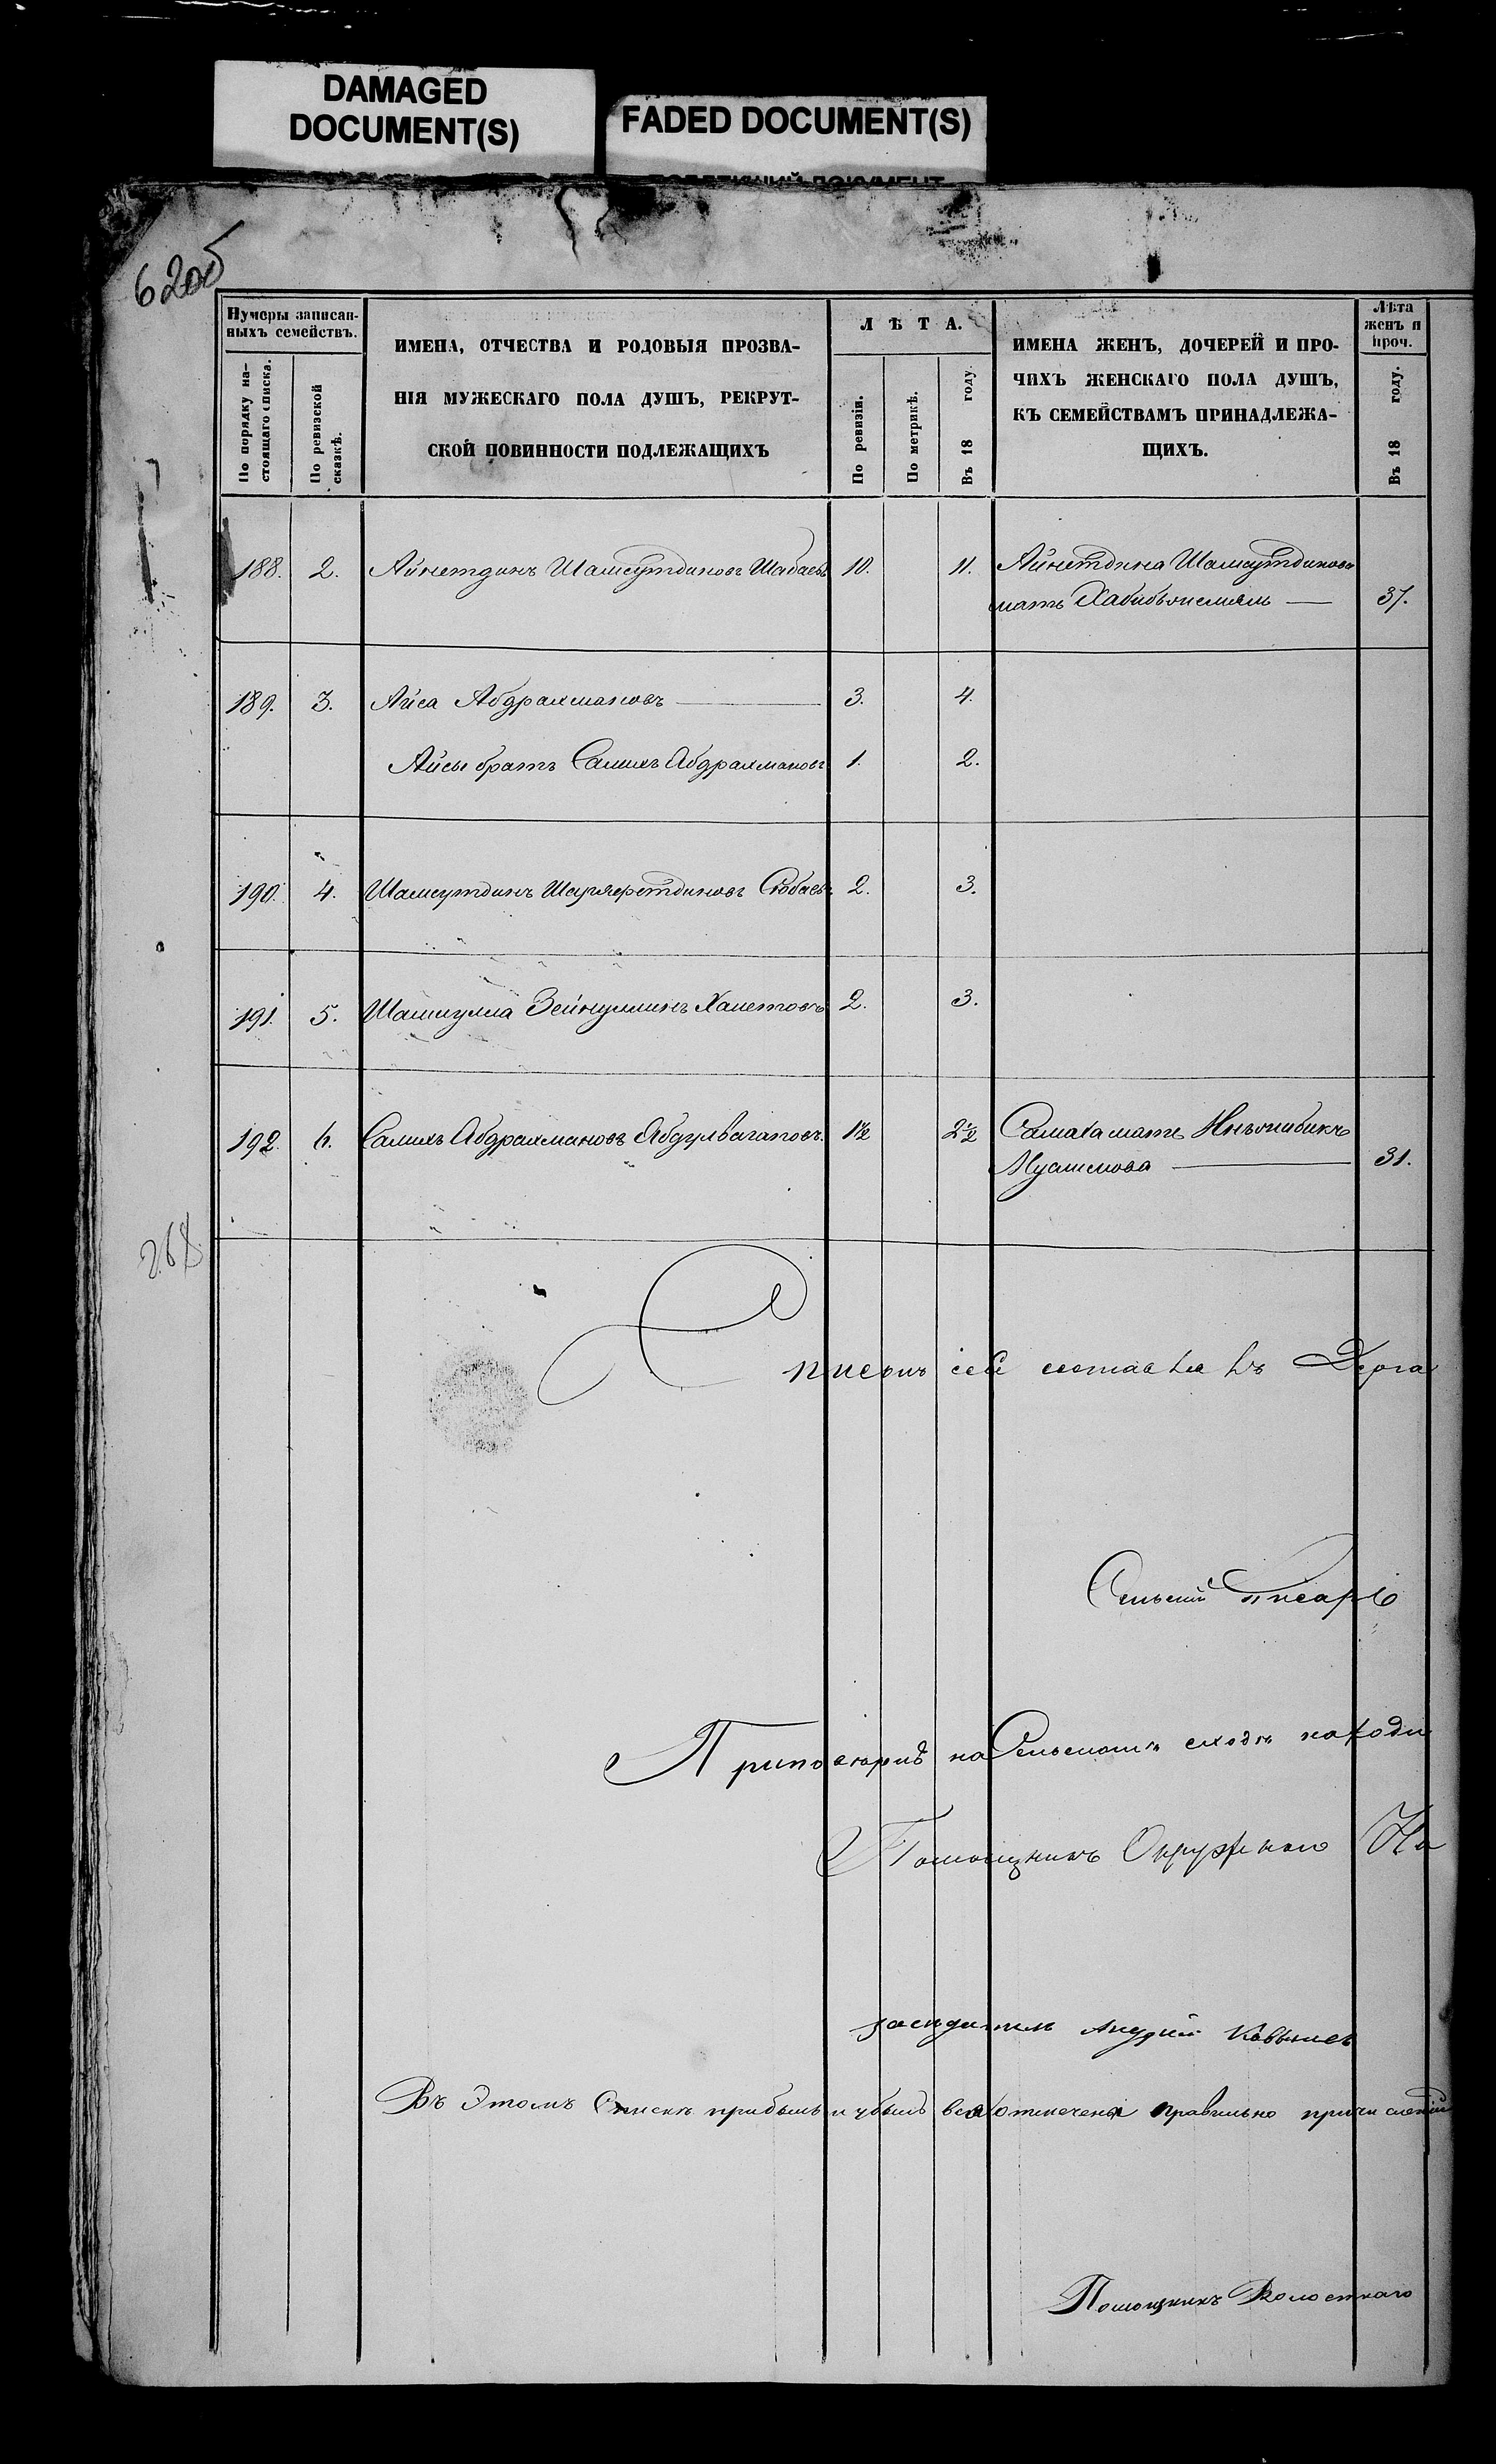 DAMAGED
DOCUMENT(S)
FADED DOCUMENT(S)
620об
Нумеры записан-
ныхъ семействъ.
По порядку на-
стоящаго списка.
По ревизской
сказкѣ.
ИМЕНА, ОТЧЕСТВА И РОДОВЫЯ ПРОЗВА-
НІЯ МУЖЕСКАГО ПОЛА ДУШЪ, РЕКРУТ-
СКОЙ ПОВИННОСТИ ПОДЛЕЖАЩИХЪ
ЛѢТА.
По ревизіи.
По метрикѣ.
Въ 18 году.
ИМЕНА ЖЕНЪ, ДОЧЕРЕЙ И ПРО-
ЧИХЪ ЖЕНСКАГО ПОЛА ДУШЪ,
КЪ СЕМЕЙСТВАМЪ ПРИНАДЛЕЖА-
ЩИХЪ.
Лѣта
женъ и
проч.
Въ 18 году.
188. 2. Айнетдинъ Шамсутдиновъ Шабаевъ 10. 11. Айнетдина Шамсутдинова
мать 37.
189. 3. Айса Абдрахмановъ 3. 4.
Айсы братъ Салихъ Абдрахмановъ 1. 2.
190. 4. Шамсутдинъ Шаряфетдиновъ Сюбаевъ 2. 3.
191. 5. Шамгулла Зейнуллинъ Хаметовъ 2. 3.
192. 6. Салихъ Абдрахмановъ Абдулвагаповъ. 1½ 2½ Салиха мать
31.
268
Списокъ сей составлялъ
Сельскій Писарь
Приповѣркѣ на Сельскомъ сходѣ находи
Помощникъ Окружнаго На
засѣдатель Андрей
Въ Этомъ Спискѣ прибыль и убыль вся отмечена правильно причисленія
Помощникъ Волостнаго